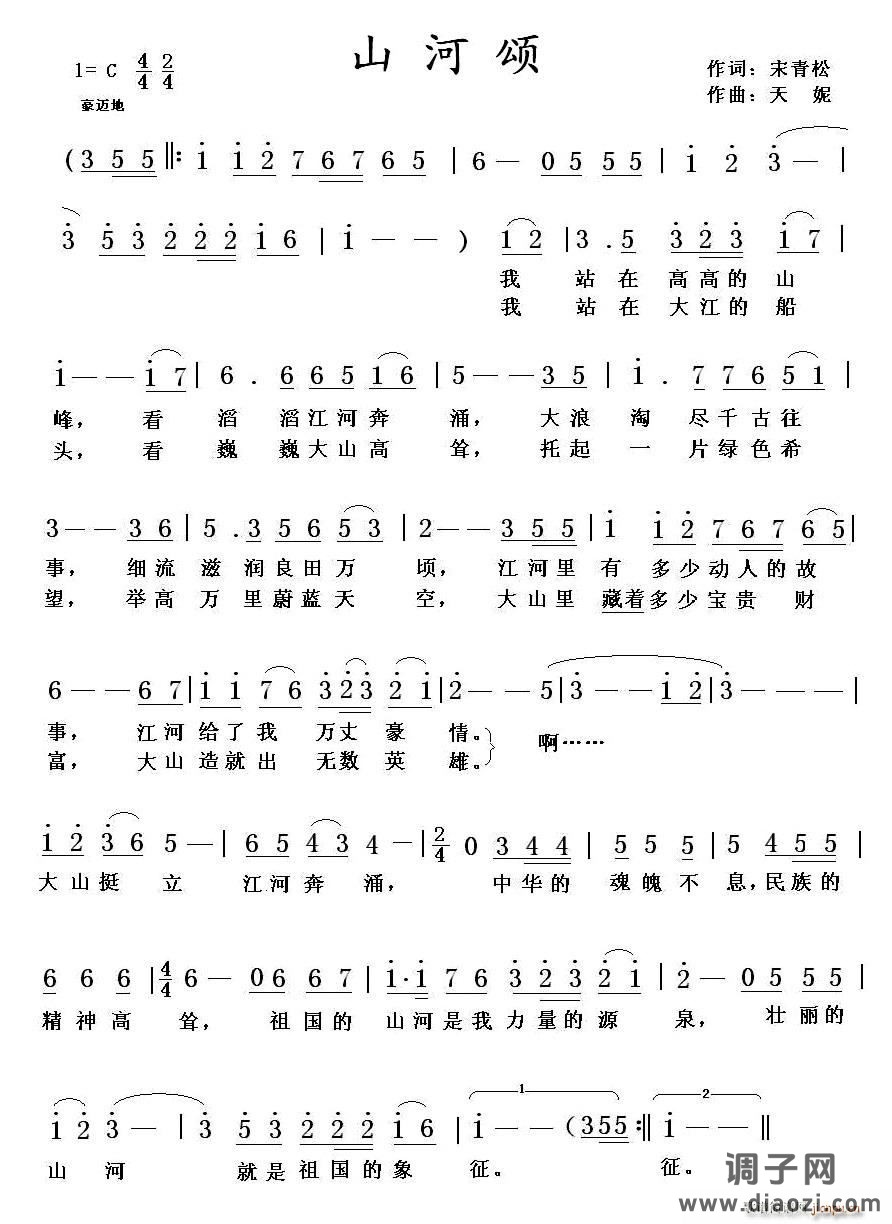 山河颂
1= C 4/4 2/4
作词：宋青松
豪迈地
作曲：天 妮
( 3 5 5 ‖: i i 2 7 6 7 6 5 | 6 — 0 5 5 5 5 | i 2 3 — |
3 5 3 2 2 2 i 6 | i — — ) i 2 | 3 . 5 3 2 3 i 7 |
我 站 在 高 高 的 山
我 站 在 大 江 的 船
i — — i 7 | 6 . 6 6 5 i 6 | 5 — — 3 5 | i . 7 7 6 5 1 |
峰， 看 滔 滔 江 河 奔 涌， 大 浪 淘 尽 千 古 往
头， 看 巍 巍 大 山 高 耸， 托 起 一 片 绿 色 希
3 — — 3 6 | 5 . 3 5 6 5 3 | 2 — — 3 5 5 | i i 2 7 6 7 6 5 |
事， 细 流 滋 润 良 田 万 顷， 江 河 里 有 多 少 动 人 的 故
望， 举 高 万 里 蔚 蓝 天 空， 大 山 里 藏着 多 少 宝 贵 财
6 — — 6 7 | i i 7 6 3 2 3 2 i | 2 — — 5 | 3 — — i 2 | 3 — — — |
事， 江 河 给 了 我 万 丈 豪 情。 啊……
富， 大 山 造 就 出 无 数 英 雄。
i 2 3 6 5 — | 6 5 4 3 4 — | 2/4 0 3 4 4 | 5 5 5 | 5 4 5 5 |
大 山 挺 立 江 河 奔 涌， 中 华 的 魂 魄 不 息， 民 族 的
6 6 6 | 4/4 6 — 0 6 6 7 | i · i 7 6 3 2 3 2 i | 2 — 0 5 5 5 |
精 神 高 耸， 祖 国 的 山 河 是 我 力 量 的 源 泉， 壮 丽 的
i 2 3 — | 3 5 3 2 2 2 i 6 | 1 i — ( 3 5 5 :‖ 2 i — — ‖
山 河 就 是 祖 国 的 象 征。 征。
调子网
www.diaozi.com